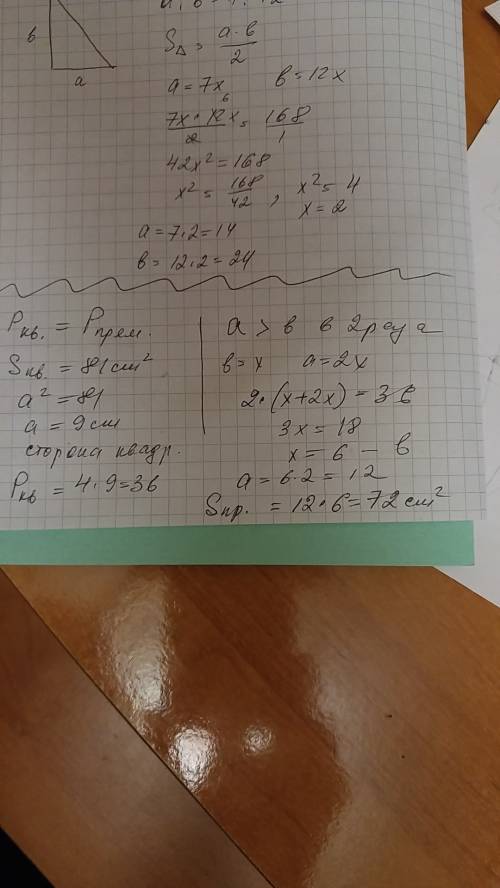 в
a
S△ = a·в/2
a = 7x в = 12x
7x·12x/2 = 168/1
6
42x² = 168
x² = 168/42, x² = 4
x = 2
a = 7·2 = 14
в = 12·2 = 24
Pкв. = Pпрям.
Sкв. = 81 см²
a² = 81
a = 9 см
сторона квадр.
Pкв = 4·9 = 36
a > в в 2 раза
в = x a = 2x
2·(x+2x) = 36
3x = 18
x = 6 – в
a = 6·2 = 12
Sпр. = 12·6 = 72 см²